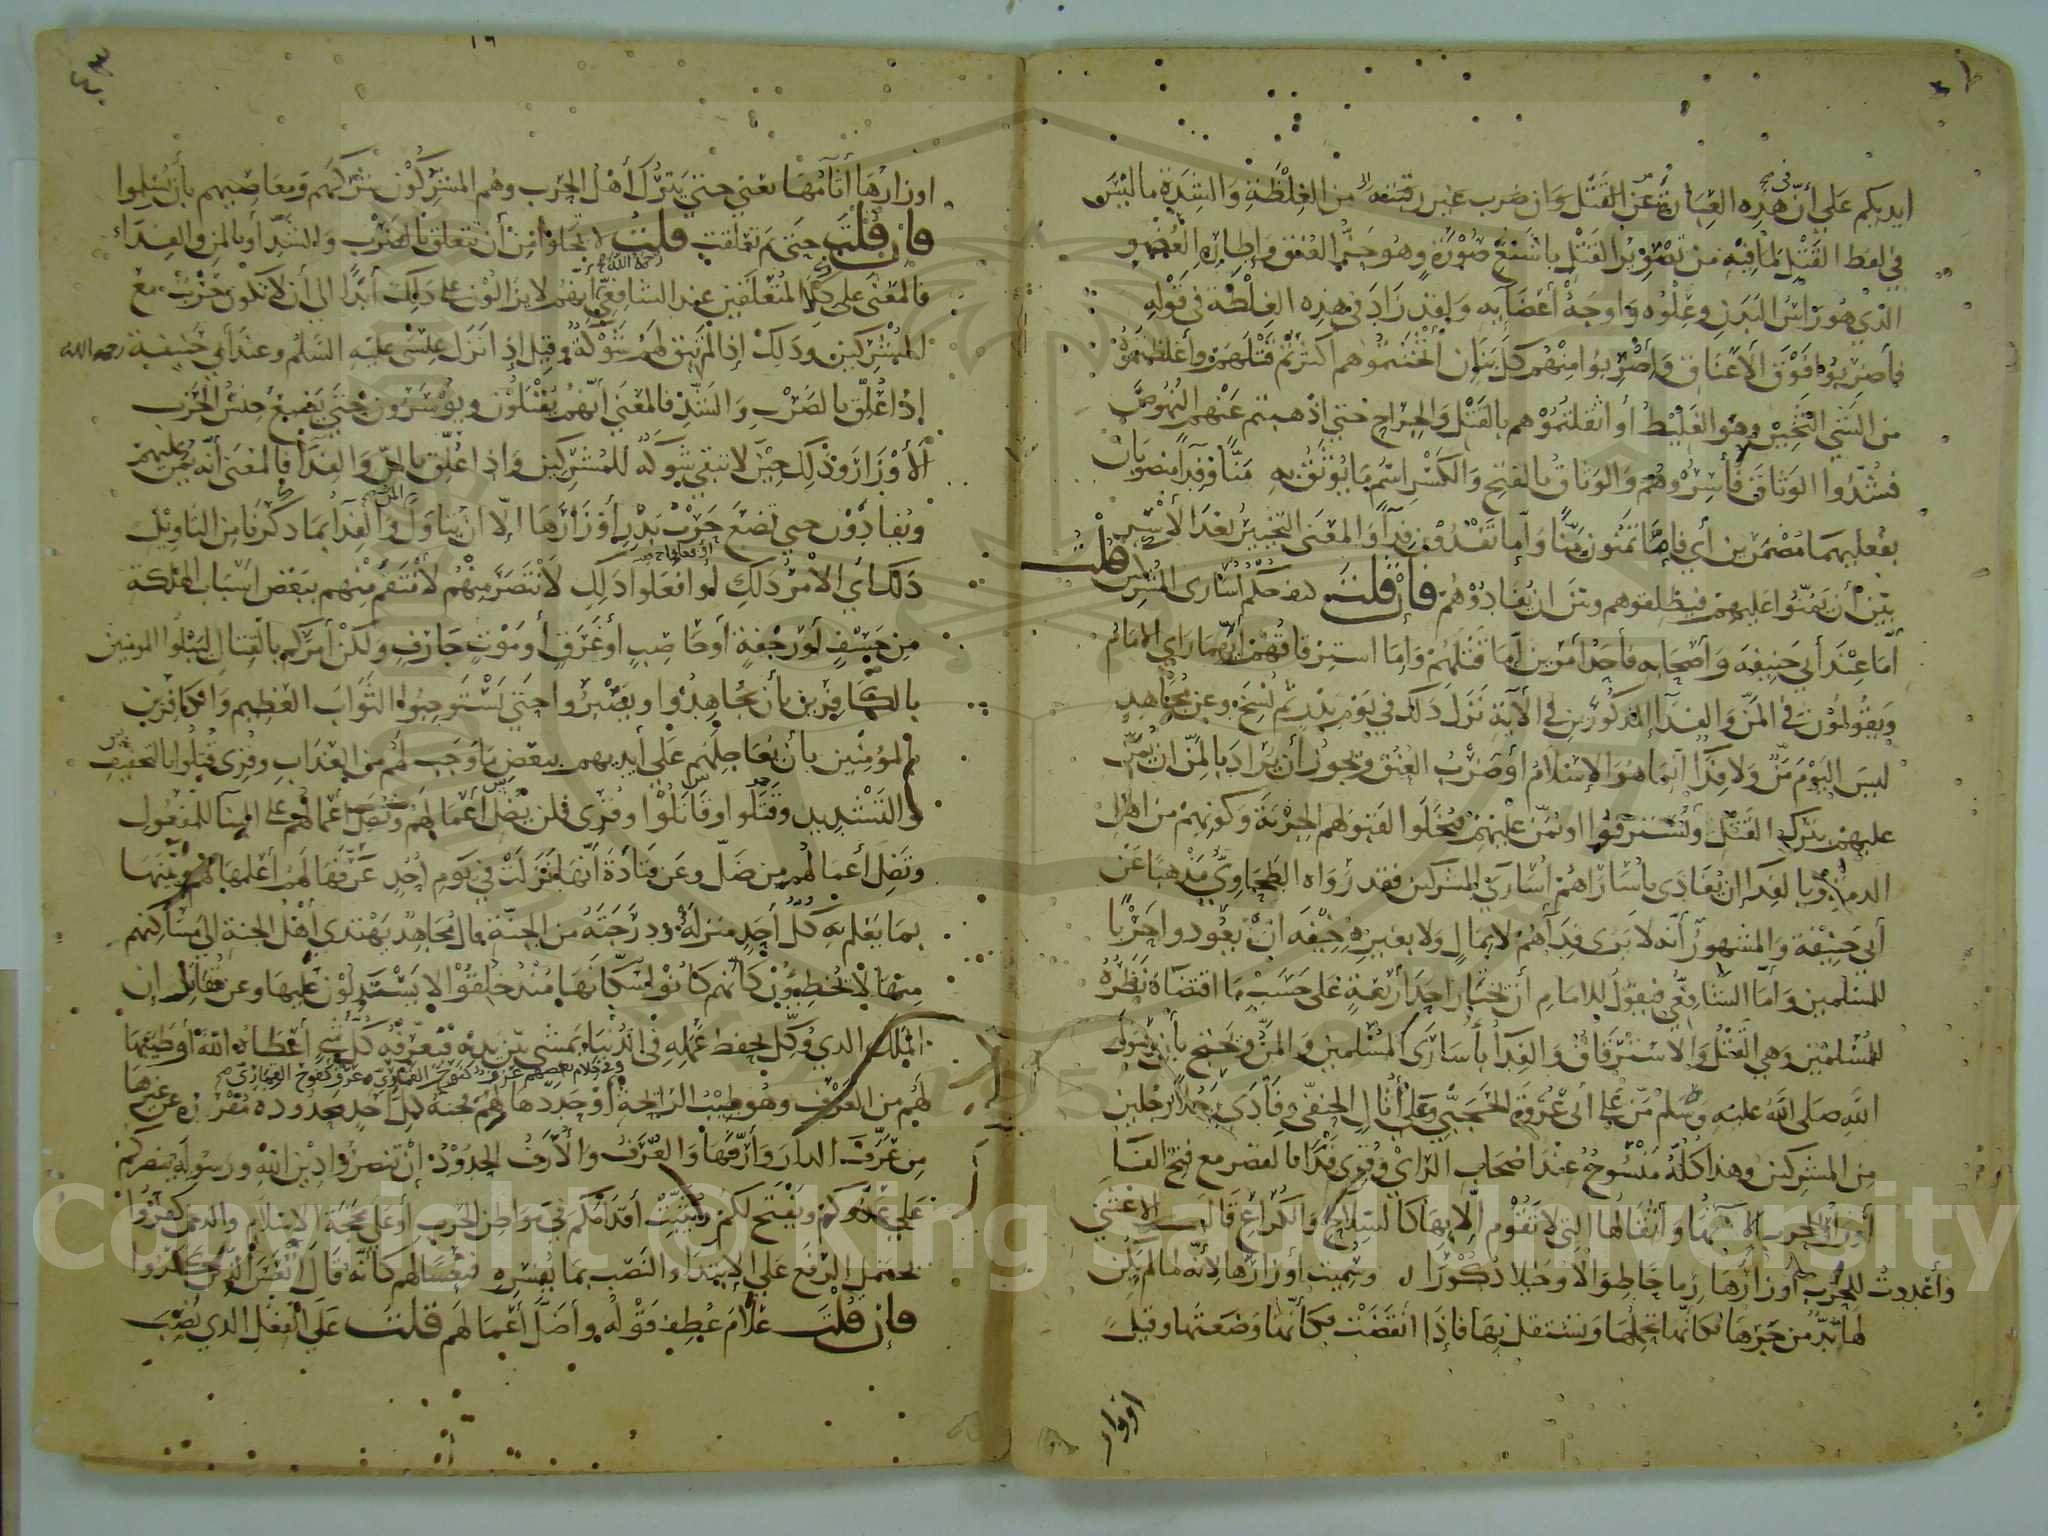 ايديكم على أنّ في هذه العبارة عن القتل وان ضرب غير رقبته من الغلظة والشدة ما ليس
في لفظ القتل لما فيه من تصوير القتل باشنع صورة وهو حز العنق وإطارة العضو
الذي هو رأس البدن وعلوه واوجه أعضايه ولقد زاد في هذه الغلظة في قوله
فاضربوا فوق الأعناق واضربوا منهم كل بنان أثخنتموهم اكثرتم قتلهم وأغلظتموه
من الشي الثخين وهو الغليظ أو اثقلتموهم بالقتل والجراح حتى اذهبتم عنهم النهوض
فشدوا الوثاق فأسروهم والوثاق بالفتح والكسر اسم ما يوثق به منّا وفدآ منصوبان
بفعليهما مضمرين أي فإمّا تمنّون منّا وامّا تفدون فدآءً والمعنى التخيير بعد الأسر
بين أن يمنّوا عليهم فيطلقوهم وبين ان يفادوهم فإن قلت كيف حكم أسارى المشركين قلت
أمّا عند أبي حنيفه وأصحابه فأحد أمرين امّا قتلهم وامّا استرقاقهم أيهما رأي الإمام
ويقولون في المنّ والفدآ المذكورين في الآية نزل ذلك في يوم بدر ثم نسخ وعن مجاهد
ليس اليوم منّ ولا فدآ انما هو الإسلام أو ضرب العنق ويجوز أن يراد بالمنّ ان يمن
عليهم بترك القتل ويسترقوا او يمنّ عليهم فيخلوا لقبولهم الجزية وكونهم من اهل
الذمة وبالفدآ ان يفادى باساراهم اسارى المشركين فقد رواه الطحاويّ مذهبًا عن
أبي حنيفة والمشهور أنّه لا يرى فدآهم لا بمال ولا بغيره خيفه أن يعودوا حربًا
للمسلمين وأمّا الشافعيّ فيقول للإمام أن يختار احد أربعة على حسب ما اقتضاه نظره
للمسلمين وهي القتل والاسترقاق والفدآ بأسارى المسلمين والمنّ ويحتج بأن رسول
الله صلى الله عليه وسلم منّ على أبي عروة الحجبي وعلى أثال الحنفيّ وفادى رجلا برجلين
من المشركين وهذا كله منسوخ عند اصحاب الرأي وقرى فدًا بالقصر مع فتح الفا
أوزار الحرب الاتها وأثقالها التي لا تقوم إلّا بها كالسلاح والكراع قال الاعشى
وأعددت للحرب أوزارها رماحًا طوالا وخيلا ذكورًا وسميت أوزارها لأنه لما لم يكن
لها بدّ من جرها فكانها تحملها وتستقل بها فإذا انقضت فكأنها وضعتها وقيل
اوزار
اوزارها أثآمها يعني حتى يترك أهل الحرب وهم المشركون شركهم ومعاصيهم بأن يسلموا
فإن قلت حتى بم تعلقت قلت لا تخلوا من أن تتعلق بالضرب والشدّ أو بالمنّ والفدآء
فالمعنى على كلا المتعلقين عند الشافعيّ رحمة الله أنهم لا يزالون على ذلك أبدًا الى أن لا تكون حرب مع
المشركين وذلك إذا لم يبق لهم شوكة وقيل إذ انزل عيسى عليه السلم وعند أبي حنيفة رحمه الله
إذا علق بالضرب والشدّ فالمعنى أنهم يقتلون ويوسرون حتى يضع جنس الحرب
الأوزار وذلك حين لا تبقى شوكة للمشركين واذا علّق بالمن والفدآ فالمعنى أنه يمن عليهم
ويفادون حتى تضع حرب بدر أوزارها إلّا ان يتاول المن والفدآ بما ذكرنا من التاويل
ذلك أي الأمر ذلك أو افعلوا ذلك لانتصر منهم لأنتقم منهم ببعض اسباب الهلكة
من خسف أو رجفة أو حاصب أو غرق أو موت جارف ولكن أمركم بالقتال ليبلوا المومنين
بالكافرين بأن يجاهدوا ويصبروا حتى يستوجبوا الثواب العظيم والكافرين
بالمؤمنين بأن يعاجلهم على أيديهم ببعض ما وجب لهم من العذاب وقرى قتلوا بالتخفيف
والتشديد وقتلوا وقاتلوا وقرى فلن يضل أعمالهم وتضل أعمالهم على البنآ للمفعول
وتضل أعمالهم من ضلّ وعن قتادة أنها نزلت في يوم أحد عرّفها لهم أعلمها لهم وبيّنها
بما يعلم به كل أحد منزله ودرجته من الجنّة قال مجاهد يهتدي أهل الجنة الى مساكنهم
منها لا يخطئون كأنهم كانوا سكّانها منذ خلقوا لا يستدلون عليها وعن مقاتل إن
الملك الذي وكّل بحفظ عمله في الدنيا يمشي بين يديه فيعرّفه كلّ شي أعطاه الله أو طيبها
وفي كلام بعضهم عزف كنوح القماري وعرف كفوح القماري
لهم من العرف وهو طيب الرائحة أو حددها لهم فجنة كل احد محدودة مفرزه عن غيرها
من عرّف الدار وأرّفها والعرف والأرف الحدود إن تنصروا دين الله ورسوله ينصركم
على عدوكم ويفتح لكم ويثبت أقدامكم في مواطن الحرب أو على محجة الإسلام والذين كفروا
يحتمل الرفع على الابتداء والنصب بما يفسره فتعسًا لهم كأنه قال أتعس الذين كفروا
فإن قلت علام عطف قوله وأضل أعمالهم قلت على الفعل الذي نصب